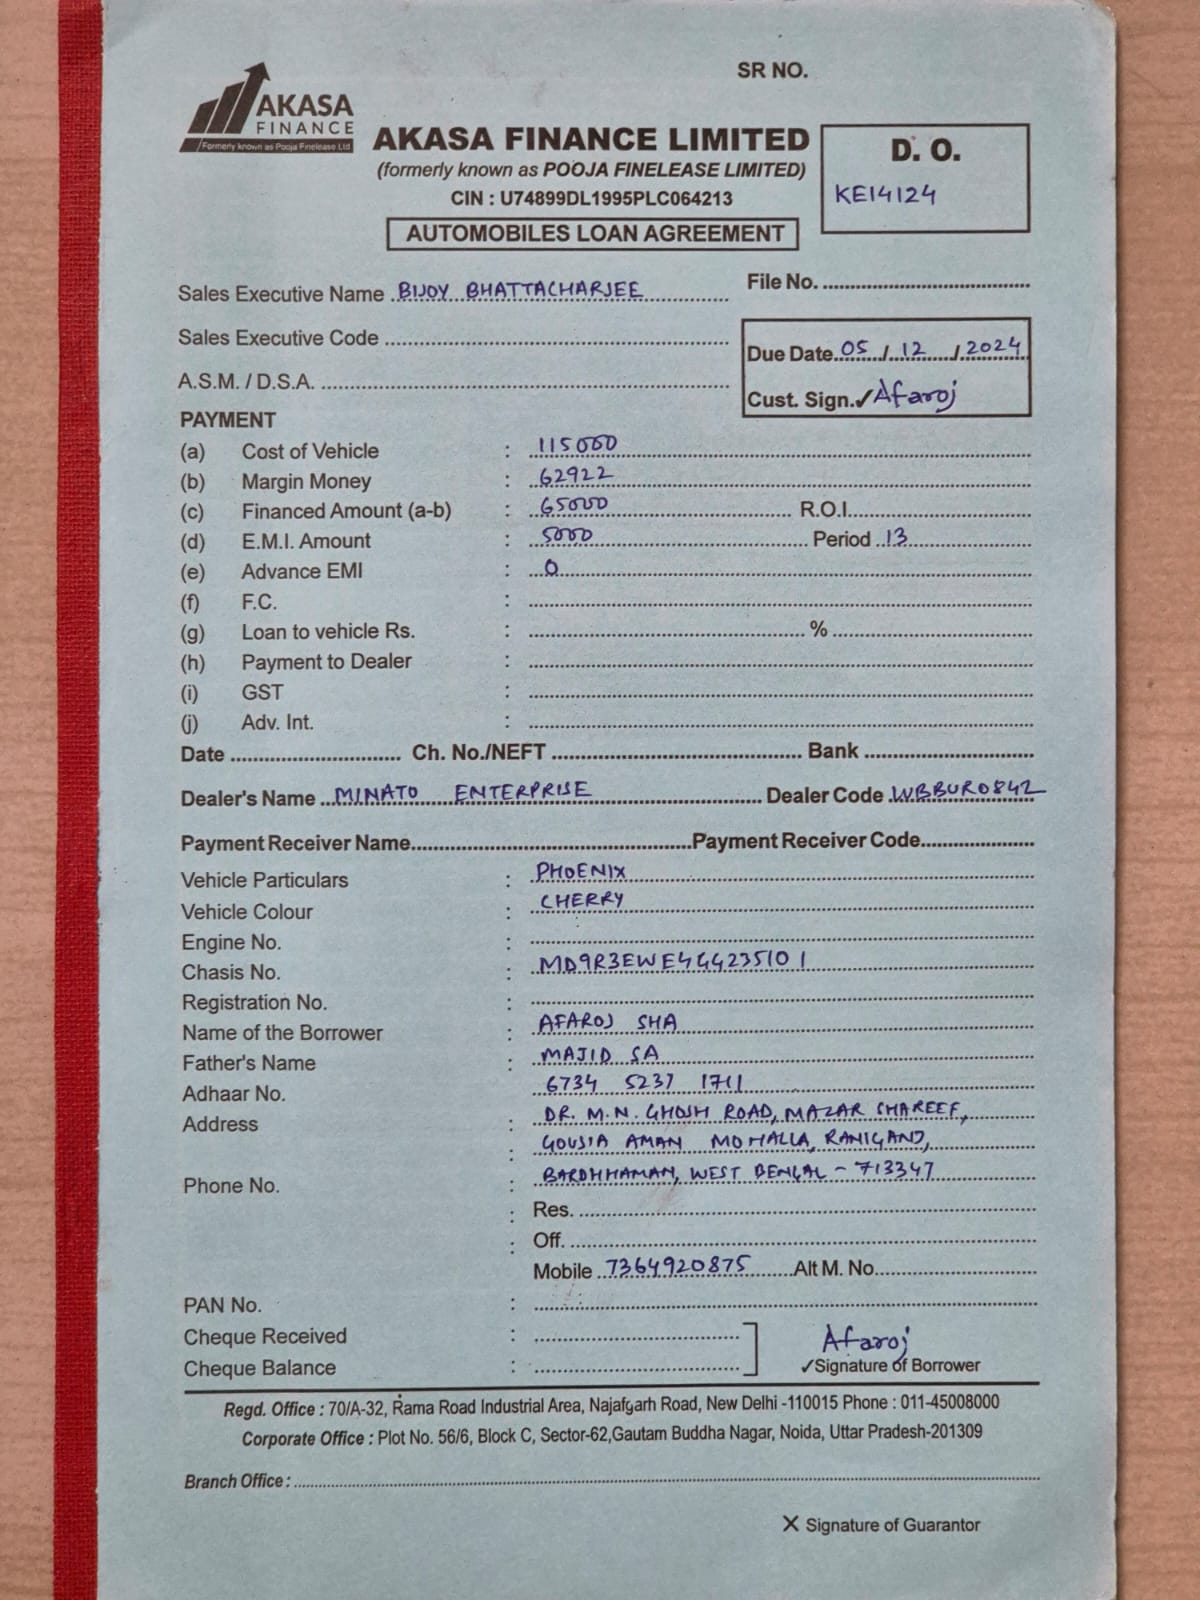 SR NO.
AKASA
FINANCE
Formerly known as Pooja Finelease Ltd
AKASA FINANCE LIMITED
(formerly known as POOJA FINELEASE LIMITED)
CIN : U74899DL1995PLC064213
AUTOMOBILES LOAN AGREEMENT
D. O.
KE14124
Sales Executive Name BIJOY BHATTACHARJEE File No.
Sales Executive Code
Due Date 05 / 12 / 2024
A.S.M. / D.S.A.
Cust. Sign.✓ Afaroj
PAYMENT
(a) Cost of Vehicle : 115000
(b) Margin Money : 62922
(c) Financed Amount (a-b) : 65000 R.O.I.
(d) E.M.I. Amount : 5000 Period 13
(e) Advance EMI : 0
(f) F.C. :
(g) Loan to vehicle Rs. : %
(h) Payment to Dealer :
(i) GST :
(j) Adv. Int. :
Date Ch. No./NEFT Bank
Dealer's Name MINATO ENTERPRISE Dealer Code WBBUR0842
Payment Receiver Name Payment Receiver Code
Vehicle Particulars : PHOENIX
Vehicle Colour : CHERRY
Engine No. :
Chasis No. : MD9R3EWE4G4235101
Registration No. :
Name of the Borrower : AFAROJ SHA
Father's Name : MAJID SA
Adhaar No. 6734 5237 1711
Address : DR. M.N. GHOSH ROAD, MAZAR SHAREEF,
: GOUSIA AMAN MOHALLA, RANIGANJ,
Phone No. : BARDHHAMAN, WEST BENGAL - 713347
: Res.
: Off.
Mobile 7364920875 Alt M. No.
PAN No. :
Cheque Received :
Afaroj
Cheque Balance : ✓Signature of Borrower
Regd. Office : 70/A-32, Rama Road Industrial Area, Najafgarh Road, New Delhi -110015 Phone : 011-45008000
Corporate Office : Plot No. 56/6, Block C, Sector-62,Gautam Buddha Nagar, Noida, Uttar Pradesh-201309
Branch Office :
X Signature of Guarantor